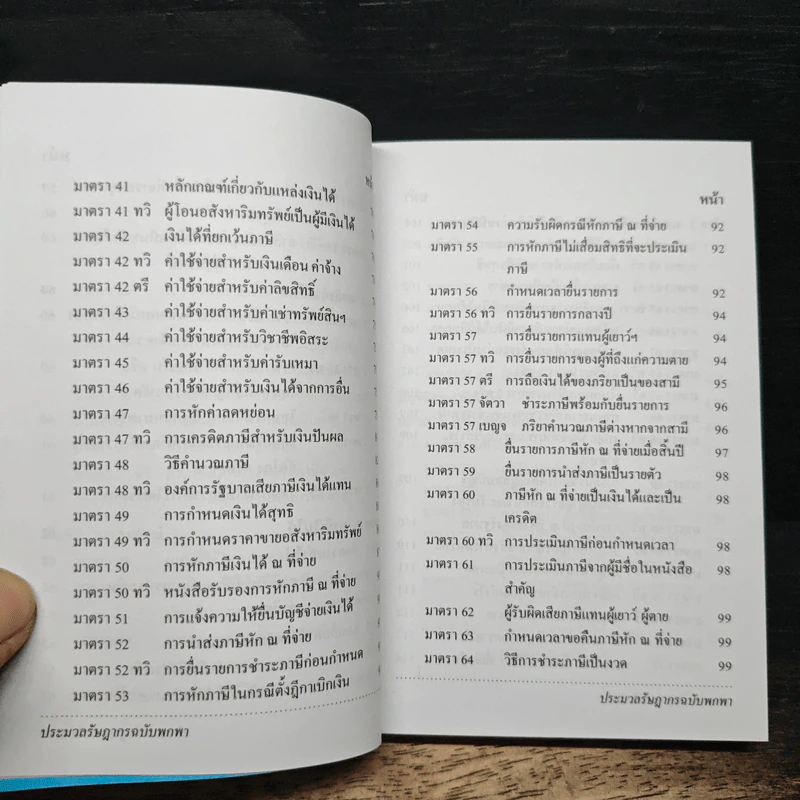 มาตรา 41 หลักเกณฑ์เกี่ยวกับแหล่งเงินได้
มาตรา 41 ทวิ ผู้โอนอสังหาริมทรัพย์เป็นผู้มีเงินได้
มาตรา 42 เงินได้ที่ยกเว้นภาษี
มาตรา 42 ทวิ ค่าใช้จ่ายสำหรับเงินเดือน ค่าจ้าง
มาตรา 42 ตรี ค่าใช้จ่ายสำหรับค่าลิขสิทธิ์
มาตรา 43 ค่าใช้จ่ายสำหรับค่าเช่าทรัพย์สินฯ
มาตรา 44 ค่าใช้จ่ายสำหรับวิชาชีพอิสระ
มาตรา 45 ค่าใช้จ่ายสำหรับค่ารับเหมา
มาตรา 46 ค่าใช้จ่ายสำหรับเงินได้จากการอื่น
มาตรา 47 การหักค่าลดหย่อน
มาตรา 47 ทวิ การเครดิตภาษีสำหรับเงินปันผล
มาตรา 48 วิธีคำนวณภาษี
มาตรา 48 ทวิ องค์การรัฐบาลเสียภาษีเงินได้แทน
มาตรา 49 การกำหนดเงินได้สุทธิ
มาตรา 49 ทวิ การกำหนดราคาขายอสังหาริมทรัพย์
มาตรา 50 การหักภาษีเงินได้ ณ ที่จ่าย
มาตรา 50 ทวิ หนังสือรับรองการหักภาษี ณ ที่จ่าย
มาตรา 51 การแจ้งความให้ยื่นบัญชีจ่ายเงินได้
มาตรา 52 การนำส่งภาษีหัก ณ ที่จ่าย
มาตรา 52 ทวิ การยื่นรายการชำระภาษีก่อนกำหนด
มาตรา 53 การหักภาษีในกรณีตั้งฎีกาเบิกเงิน
ประมวลรัษฎากรฉบับพกพา
หน้า
มาตรา 54 ความรับผิดกรณีหักภาษี ณ ที่จ่าย 92
มาตรา 55 การหักภาษีไม่เสื่อมสิทธิที่จะประเมิน 92
ภาษี
มาตรา 56 กำหนดเวลายื่นรายการ 92
มาตรา 56 ทวิ การยื่นรายการกลางปี 94
มาตรา 57 การยื่นรายการแทนผู้เยาว์ฯ 94
มาตรา 57 ทวิ การยื่นรายการของผู้ที่ถึงแก่ความตาย 94
มาตรา 57 ตรี การถือเงินได้ของภริยาเป็นของสามี 95
มาตรา 57 จัตวา ชำระภาษีพร้อมกับยื่นรายการ 96
มาตรา 57 เบญจ ภริยาคำนวณภาษีต่างหากจากสามี 96
มาตรา 58 ยื่นรายการภาษีหัก ณ ที่จ่ายเมื่อสิ้นปี 97
มาตรา 59 ยื่นรายการนำส่งภาษีเป็นรายตัว 98
มาตรา 60 ภาษีหัก ณ ที่จ่ายเป็นเงินได้และเป็น 98
เครดิต
มาตรา 60 ทวิ การประเมินภาษีก่อนกำหนดเวลา 98
มาตรา 61 การประเมินภาษีจากผู้มีชื่อในหนังสือ 98
สำคัญ
มาตรา 62 ผู้รับผิดเสียภาษีแทนผู้เยาว์ ผู้ตาย 99
มาตรา 63 กำหนดเวลาขอคืนภาษีหัก ณ ที่จ่าย 99
มาตรา 64 วิธีการชำระภาษีเป็นงวด 99
ประมวลรัษฎากรฉบับพกพา